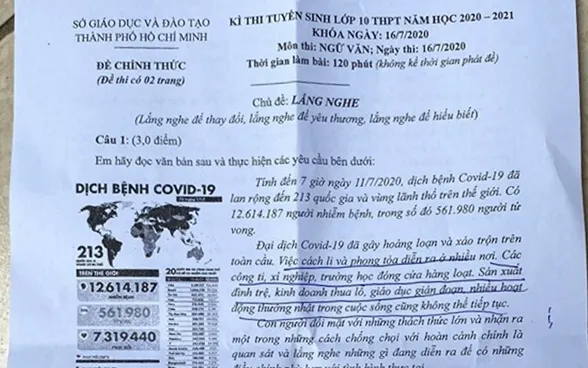 SỞ GIÁO DỤC VÀ ĐÀO TẠO
THÀNH PHỐ HỒ CHÍ MINH
ĐỀ CHÍNH THỨC
(Đề thi có 02 trang)
KÌ THI TUYỂN SINH LỚP 10 THPT NĂM HỌC 2020 – 2021
KHÓA NGÀY: 16/7/2020
Môn thi: NGỮ VĂN; Ngày thi: 16/7/2020
Thời gian làm bài: 120 phút (không kể thời gian phát đề)
Chủ đề: LẮNG NGHE
(Lắng nghe để thay đổi, lắng nghe để yêu thương, lắng nghe để hiểu biết)
Câu 1: (3,0 điểm)
Em hãy đọc văn bản sau và thực hiện các yêu cầu bên dưới:
DỊCH BỆNH COVID-19
213
TRÊN THẾ GIỚI
12.614.187
NHIỄM BỆNH
561.980
TỬ VONG
7.319.440
PHỤC HỒI
20
Tính đến 7 giờ ngày 11/7/2020, dịch bệnh Covid-19 đã
lan rộng đến 213 quốc gia và vùng lãnh thổ trên thế giới. Có
12.614.187 người nhiễm bệnh, trong số đó 561.980 người tử
vong.
Đại dịch Covid-19 đã gây hoảng loạn và xáo trộn trên
toàn cầu. Việc cách li và phong tỏa diễn ra ở nhiều nơi. Các
công ti, xí nghiệp, trường học đóng cửa hàng loạt. Sản xuất
đình trệ, kinh doanh thua lỗ, giáo dục gián đoạn, nhiều hoạt
động thường nhật trong cuộc sống cũng không thể tiếp tục.
Con người đối mặt với những thách thức lớn và nhận ra
một trong những cách chống chọi với hoàn cảnh chính là
quan sát và lắng nghe những gì đang diễn ra để có những